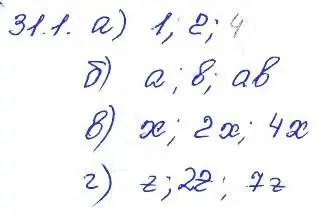 31.1. а) 1; 2; 4
б) a; b; ab
в) x; 2x; 4x
г) z; 2z; 7z